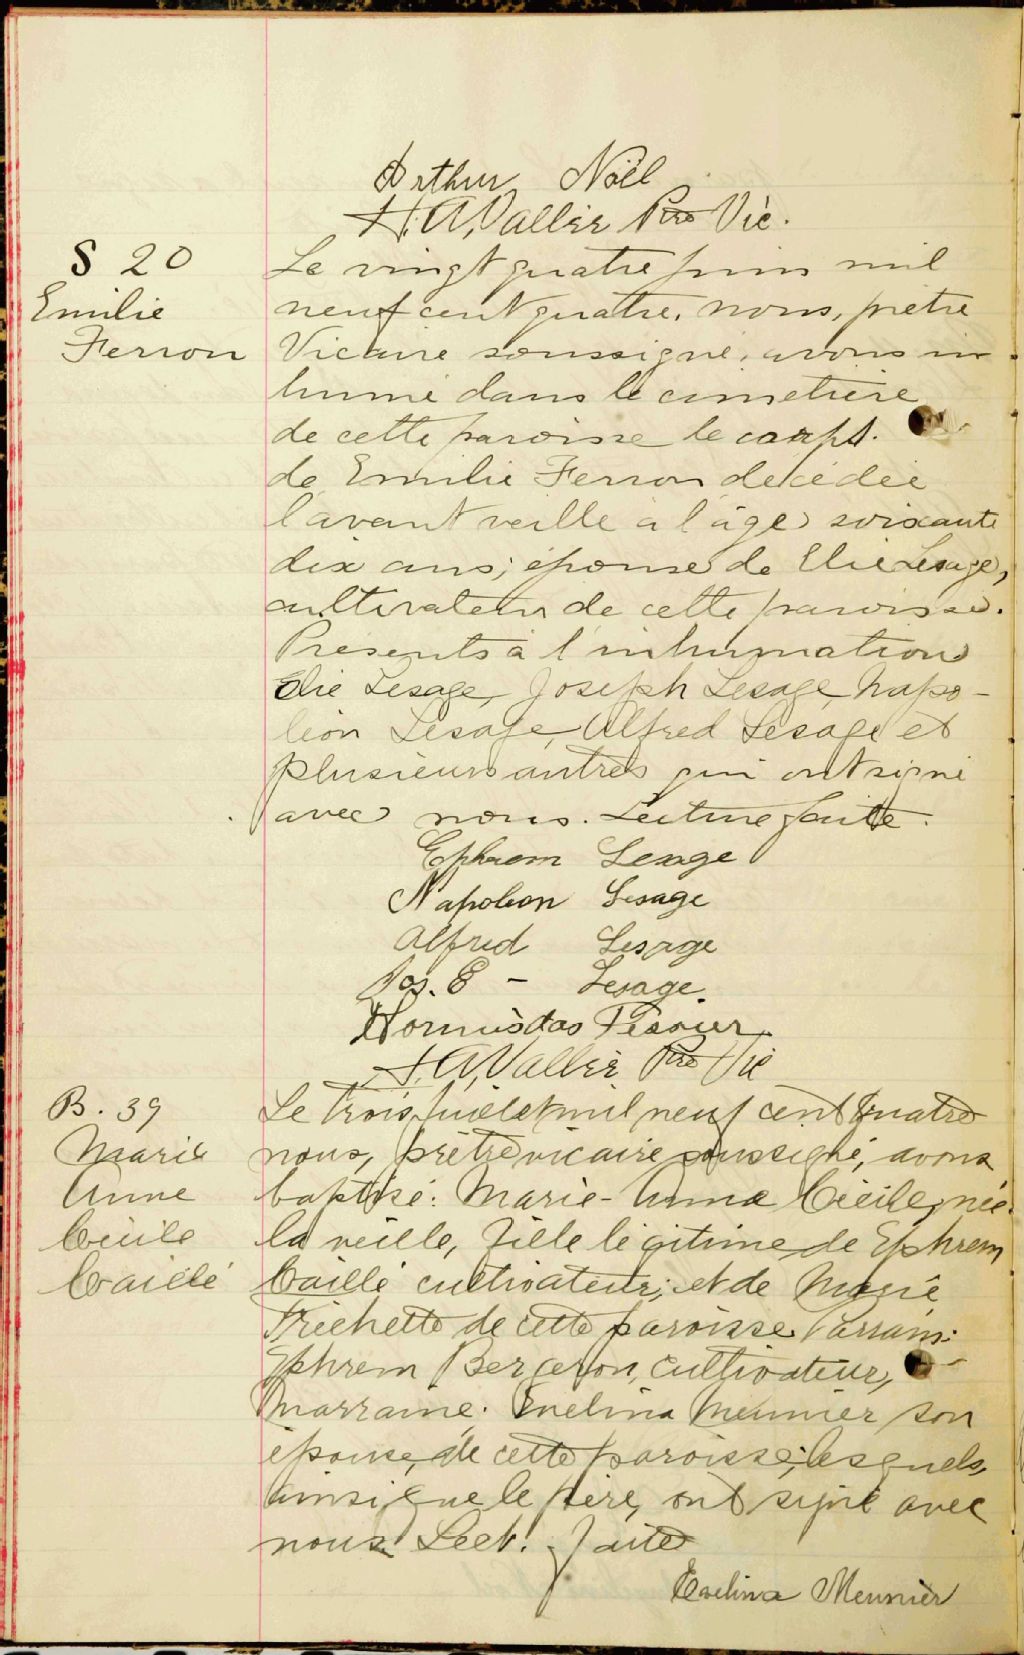 Arthur Noël
H. A. Vallée Ptre Vic.
S 20
Emilie
Ferron
Le vingt quatre juin mil
neuf cent quatre, nous, prêtre
Vicaire soussigné, avons in-
humé dans le cimetière
de cette paroisse le corps
de Emilie Ferron décédée
l'avant veille à l'âge soixante
dix ans, épouse de Elie Lesage,
cultivateur de cette paroisse.
Présents à l'inhumation
Elie Lesage, Joseph Lesage, Napo-
léon Lesage, Alfred Lesage et
plusieurs autres qui ont signé
avec nous. Lecture faite.
Ephrem Lesage
Napoleon Lesage
Alfred Lesage
Jos. E - Lesage
Hormisdas
H. A. Vallée Ptre Vic
B. 39
Marie
Anne
Cécile
Caillé
Le trois Juillet mil neuf cent quatre
nous, prêtre vicaire soussigné, avons
baptisé: Marie-Anna Cécile, née
la veille, fille légitime de Ephrem
Caillé cultivateur, et de Marie
Fréchette de cette paroisse. Parrain:
Ephrem Bergeron, cultivateur,
Marraine: Evelina Meunier son
épouse, de cette paroisse, lesquels,
ainsi que le père, ont signé avec
nous. Lect. faite
Evelina Meunier